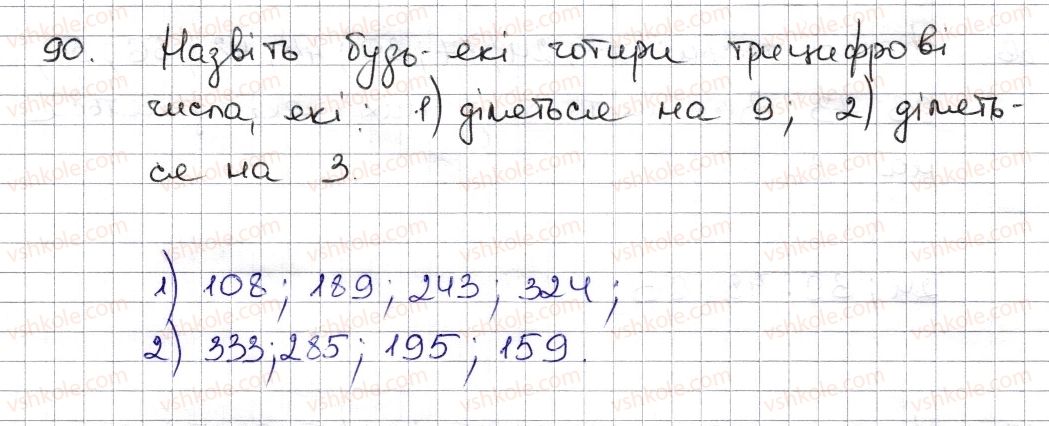 90. Назвіть будь-які чотири трицифрові
числа, які: 1) діляться на 9; 2) ділять-
ся на 3.
1) 108; 189; 243; 324;
2) 333; 285; 195; 159.